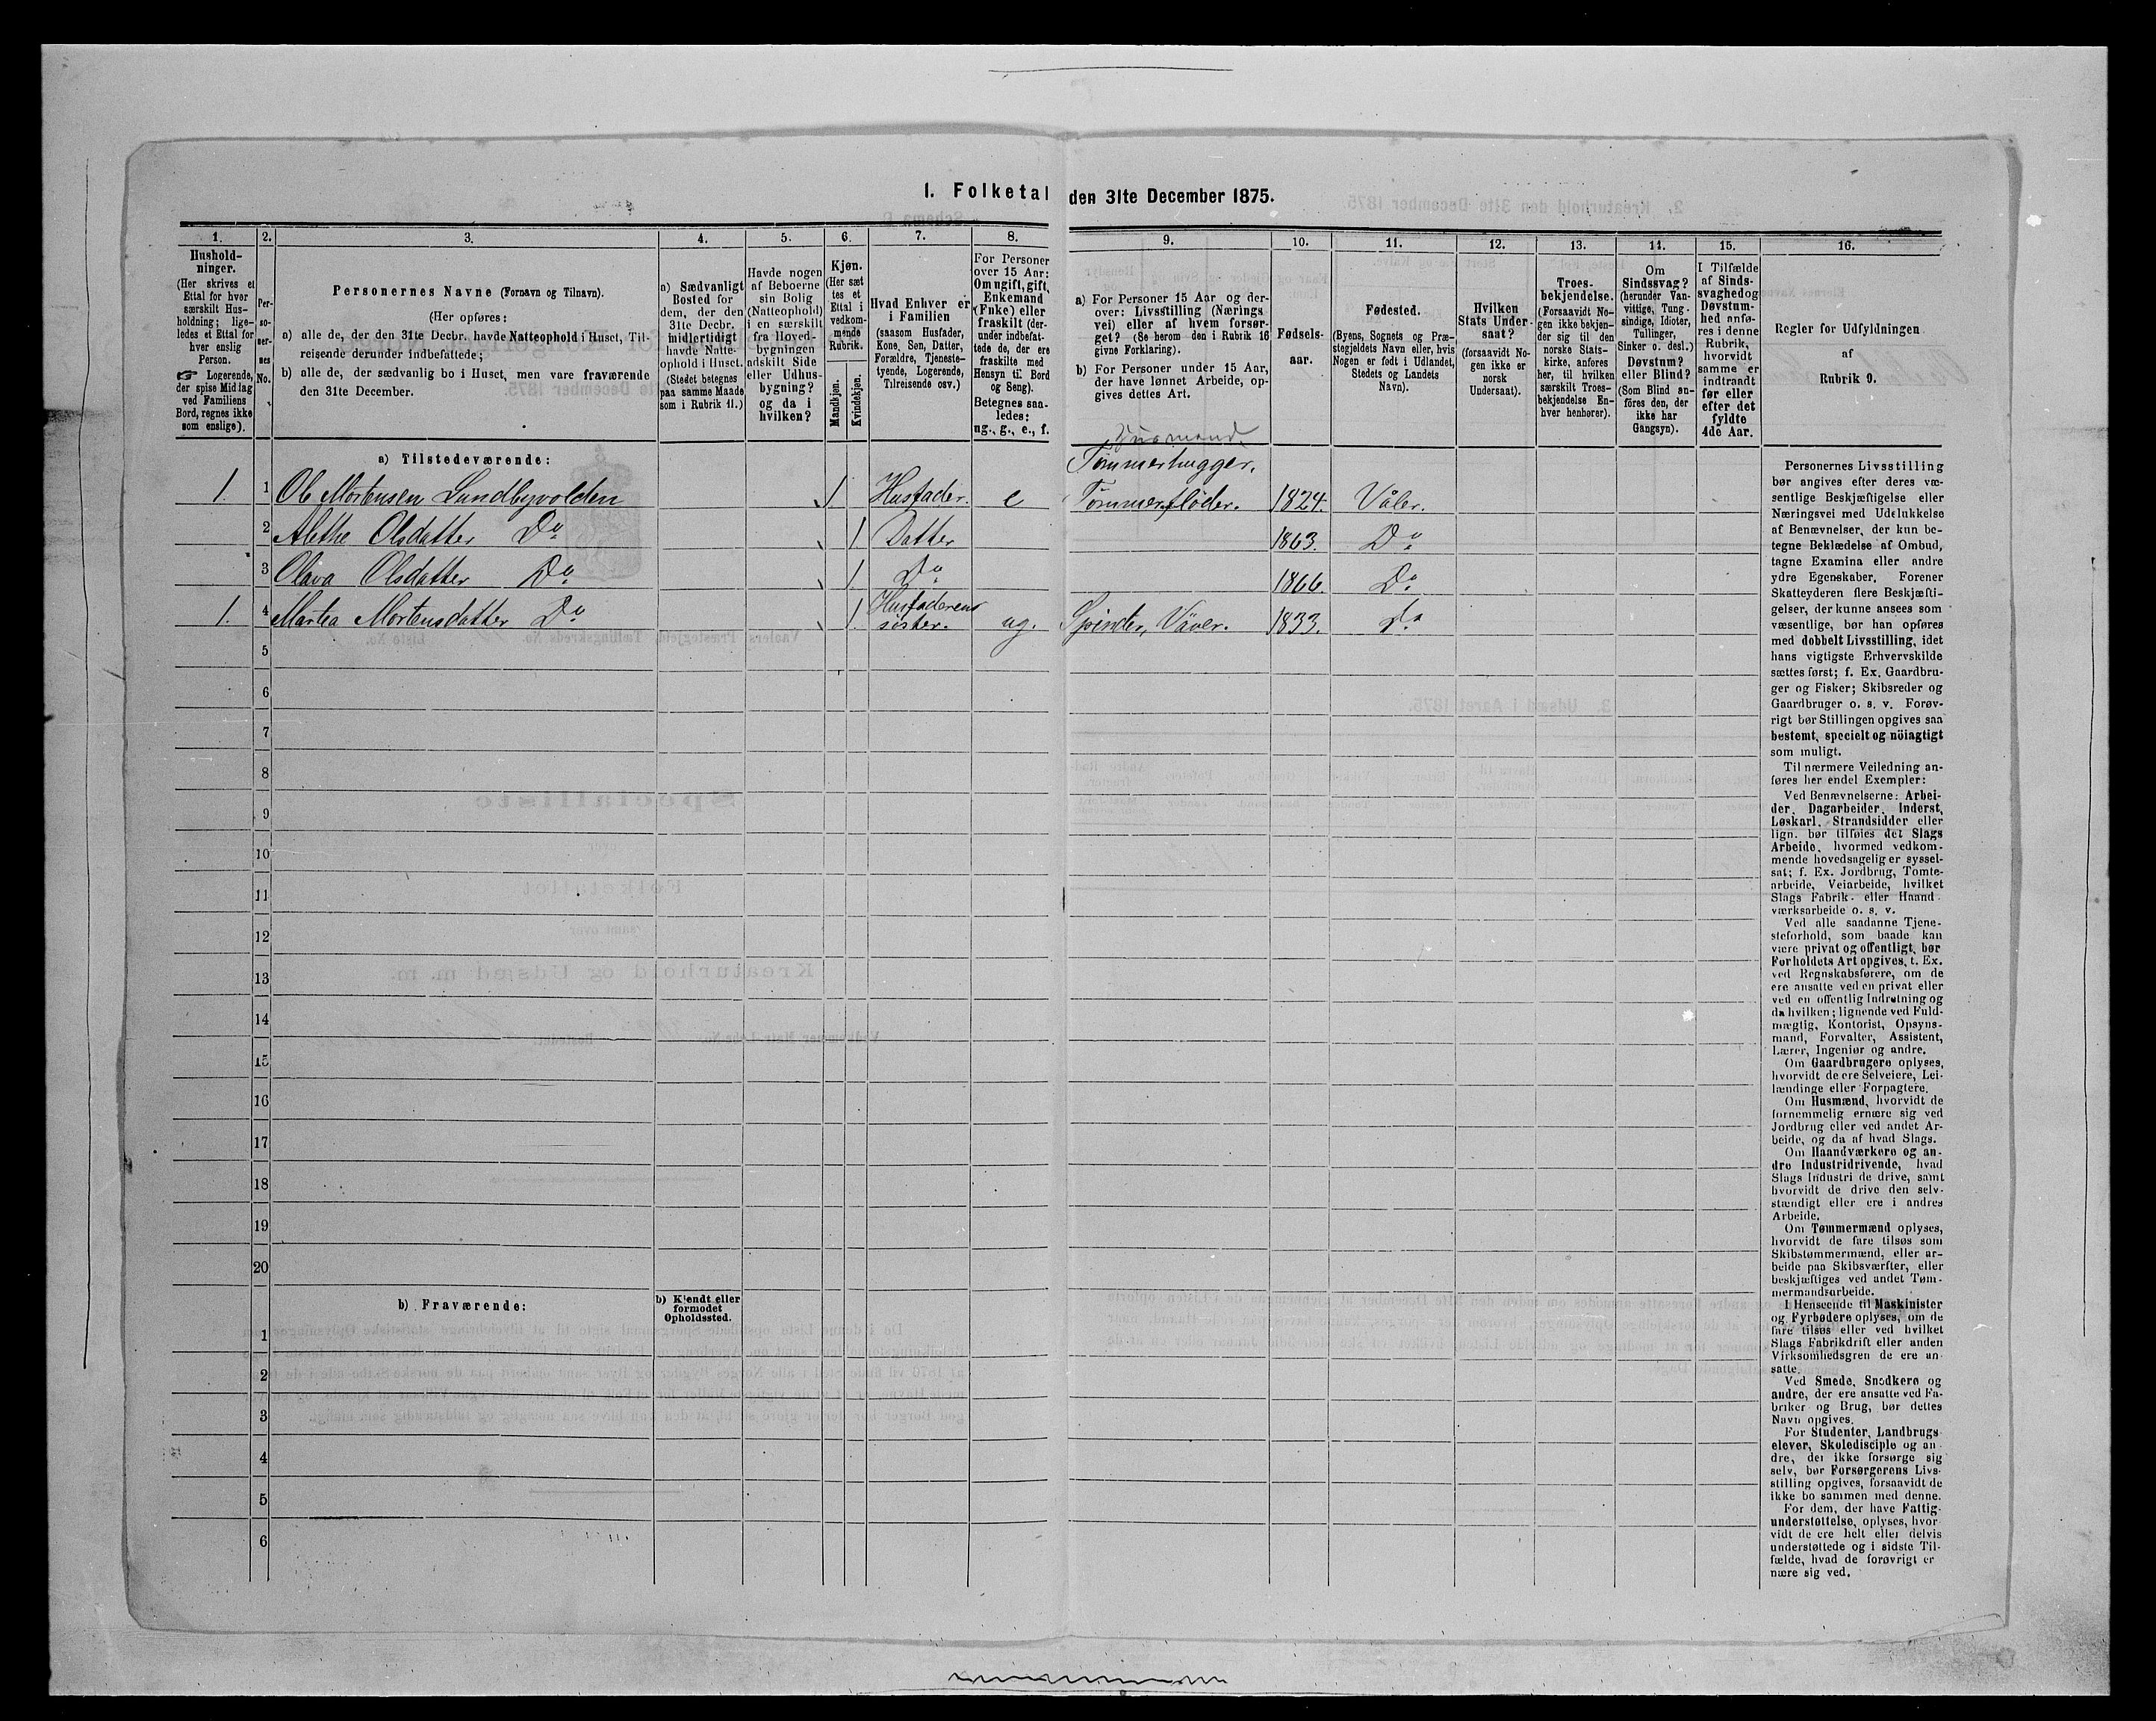 1. Folketal den 31te December 1875.
1.
2.
3.
4.
5.
6.
7.
8.
9.
10.
11.
12.
13.
14.
15.
16.
Hushold-
ninger.
(Her skrives et
Ettal for hver
særskilt Hus-
holdning; lige-
ledes et Ettal for
hver enslig
Person.
☞ Logerende,
der spise Middag
ved Familiens
Bord, regnes ikke
som enslige).
Per-
so-
ner-
nes
No.
Personernes Navne (Fornavn og Tilnavn).
(Her opføres:
a) alle de, der den 31te Decbr. havde Natteophold i Huset, Til-
reisende derunder indbefattede;
b) alle de, der sædvanlig bo i Huset, men vare fraværende
den 31te December.
a) Sædvanligt
Bosted for
dem, der den
31te Decbr.
midlertidigt
havde Natte-
ophold i Huset.
(Stedet betegnes
paa samme Maade
som i Rubrik 11.)
Havde nogen
af Beboerne
sin Bolig
(Natteophold)
i en særskilt
fra Hoved-
bygningen
adskilt Side
eller Udhus-
bygning?
og da i
hvilken?
Kjøn.
(Her sæt
tes et
Ettal i
vedkom-
mende
Rubrik.
Mandkjøn.
Kvindekjøn.
Hvad Enhver er
i Familien
(saasom Husfader,
Kone, Søn, Datter,
Forældre, Tjeneste-
tyende, Logerende,
Tilreisende osv.)
For Personer
over 15 Aar:
Om ugift, gift,
Enkemand
(Enke) eller
fraskilt (der-
under indbefat-
tede de, der ere
fraskilte med
Hensyn til Bord
og Seng).
Betegnes saa-
ledes:
ug., g., e., f.
a) For Personer 15 Aar og der-
over: Livsstilling (Nærings
vei) eller af hvem forsør-
get? (Se herom den i Rubrik 16
givne Forklaring).
b) For Personer under 15 Aar,
der have lønnet Arbeide, op-
gives dettes Art.
Fødsels-
aar.
Fødested.
(Byens, Sognets og Præ-
stegjeldets Navn eller, hvis
Nogen er født i Udlandet,
Stedets og Landets
Navn).
Hvilken
Stats Under-
saat?
(forsaavidt No-
gen ikke er
norsk
Undersaat).
Troes-
bekjendelse.
(Forsaavidt No-
gen ikke bekjen-
der sig til den
norske Stats-
kirke, anføres
her, til hvilken
særskilt Troes-
bekjendelse En-
hver henhører).
Om
Sindssvag?
(herunder Van-
vittige, Tung-
sindige, Idioter,
Tullinger,
Sinker o. desl.)
Døvstum?
eller Blind?
(Som Blind an-
föres den, der
ikke har
Gangsyn).
I Tilfælde
af Sinds-
svaghed og
Døvstum-
hed anfø-
res i denne
Rubrik,
hvorvidt
samme er
indtraadt
før eller
efter det
fyldte
4de Aar.
Regler for Udfyldningen
af
Rubrik 9.
a) Tilstedeværende:
Tømmerhugger,
1. 1 Ole Mortensen Lundbyvolden 1. Husfader. e Tømmerfløder. 1824. Våler.
2 Alethe Olsdatter Do 1. Datter 1863. Do
3 Olava Olsdatter Do 1. Do 1866. Do
1. 4 Martea Mortensdatter Do 1. Husfaderens
søster. ug. Spinder, Väver. 1833. Do
5
6
7
8
9
10
11
12
13
14
15
16
17
18
19
20
b) Fraværende:
b) Kjendt eller
formodet
Opholdssted.
1
2
3
4
5
6
Personernes Livsstilling
bør angives efter deres væ-
sentlige Beskjæftigelse eller
Næringsvei med Udelukkelse
af Benævnelser, der kun be-
tegne Beklædelse af Ombud,
tagne Examina eller andre
ydre Egenskaber. Forener
Skatteyderen flere Beskjæfti-
gelser, der kunne ansees som
væsentlige, bør han opføres
med dobbelt Livsstilling, idet
hans vigtigste Erhvervskilde
sættes først; f. Ex. Gaardbru-
ger og Fisker; Skibsreder og
Gaardbruger o. s. v. Forøv-
rigt bør Stillingen opgives saa
bestemt, specielt og nöiagtigt
som muligt.
Til nærmere Veiledning an-
føres her endel Exempler:
Ved Benævnelserne: Arbei-
der, Dagarbeider, Inderst,
Løskarl, Strandsidder eller
lign. bør tilføies det Slags
Arbeide, hvormed vedkom-
mende hovedsagelig er syssel-
sat; f. Ex. Jordbrug, Tomte-
arbeide, Veiarbeide, hvilket
Slags Fabrik- eller Haand-
værksarbeide o. s. v.
Ved alle saadanne Tjene-
steforhold, som baade kan
være privat og offentligt, bør
Forholdets Art opgives, f. Ex.
ved Regnskabsførere, om de
ere ansatte ved en privat eller
ved en offentlig Indretning og
da hvilken; lignende ved Fuld-
mægtig, Kontorist, Opsyns-
mand, Forvalter, Assistent,
Lærer, Ingeniør og andre.
Om Gaardbrugere oplyses,
hvorvidt de ere Selveiere, Lei-
lændinge eller Forpagtere.
Om Husmænd, hvorvidt de
fornemmelig ernære sig ved
Jordbrug eller ved andet Ar-
beide, og da af hvad Slags.
Om Haandværkere og an-
dre Industridrivende, hvad
Slags Industri de drive, samt
hvorvidt de drive den selv-
stændigt eller ere i andres
Arbeide.
Om Tømmermænd oplyses,
hvorvidt de fare tilsøs som
Skibstømmermænd, eller ar-
beide paa Skibsværfter, eller
beskjæftiges ved andet Tøm-
mermandsarbeide.
I Henseende til Maskinister
og Fyrbødere oplyses, om de
fare tilsøs eller ved hvilket
Slags Fabrikdrift eller anden
Virksomhedsgren de ere an-
satte.
Ved Smede, Snedkere og
andre, der ere ansatte ved Fa-
briker og Brug, bør dettes
Navn opgives.
For Studenter, Landbrugs-
elever, Skoledisciple og an-
dre, der ikke forsørge sig
selv, bør Forsørgerens Livs-
stilling opgives, forsaavidt de
ikke bo sammen med denne.
For dem, der have Fattig-
understøttelse, oplyses, hvor-
vidt de ere helt eller delvis
understøttede og i sidste Til-
fælde, hvad de forøvrigt er-
nære sig ved.